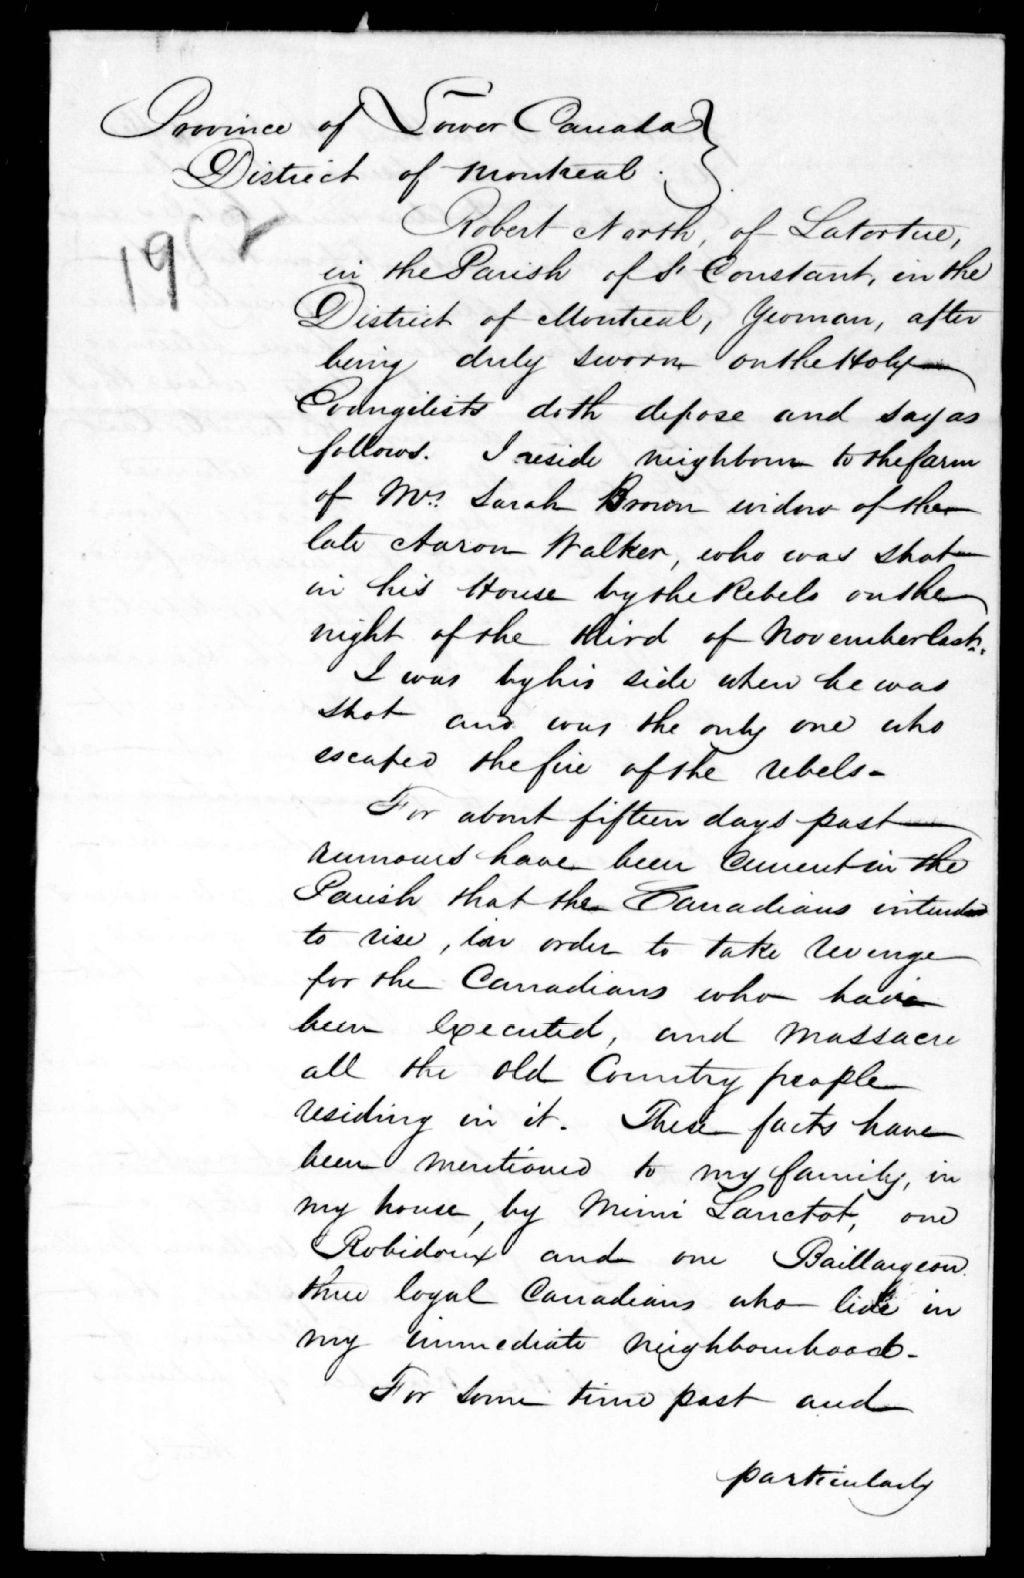 Province of Lower Canada
District of Montreal.
Robert North, of Latortue,
in the Parish of St Constant, in the
District of Montreal, Yeoman, after
being duly sworn on the Holy
Evangilists doth depose and say as
follows. I reside neighbour to the farm
of Mrs. Sarah Brown widow of the
late Aaron Walker, who was shot
in his House by the Rebels on the
night of the third of November last.
I was by his side when he was
shot and was the only one who
escaped the fire of the rebels-
For about fifteen days past
rumours have been current in the
Parish that the Canadians intended
to rise, in order to take revenge
for the Canadians who have
been executed, and massacre
all the old Country people
residing in it. These facts have
been mentioned to my family, in
my house, by Mimi Lanctot, one
Robidoux and one Baillargeon
three loyal Canadians who live in
my immediate neighbourhood-
For some time past and
particularly